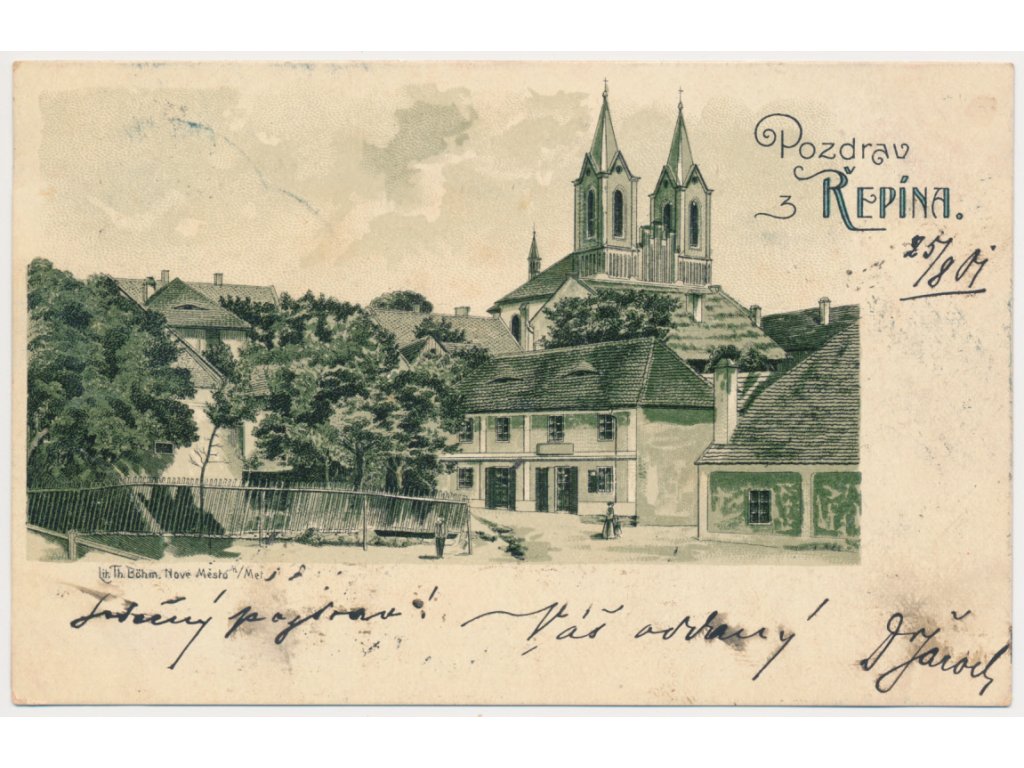 Pozdrav
z ŘEPÍNA.
25/8 01
Lit. Th. Böhm, Nové Město n/Met.
Srdečný pozdrav! Váš oddaný